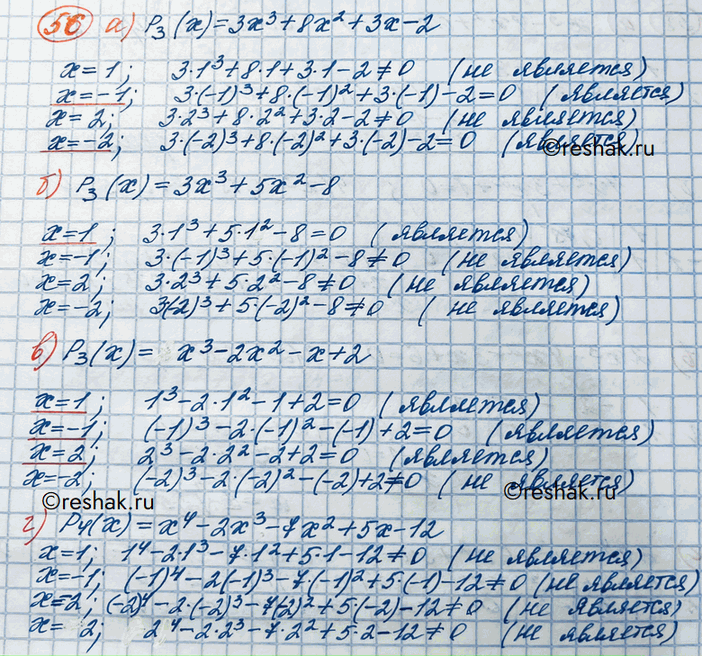 56 а) P₃(x)=3x³+8x²+3x-2
x=1; 3·1³+8·1+3·1-2≠0 (не является)
x=-1; 3·(-1)³+8·(-1)²+3·(-1)-2=0 (является)
x=2; 3·2³+8·2²+3·2-2≠0 (не является)
x=-2; 3·(-2)³+8·(-2)²+3·(-2)-2=0 (является)
©reshak.ru
б) P₃(x)=3x³+5x²-8
x=1; 3·1³+5·1²-8=0 (является)
x=-1; 3·(-1)³+5·(-1)²-8≠0 (не является)
x=2; 3·2³+5·2²-8≠0 (не является)
x=-2; 3(-2)³+5·(-2)²-8≠0 (не является)
в) P₃(x)= x³-2x²-x+2
x=1; 1³-2·1²-1+2=0 (является)
x=-1; (-1)³-2·(-1)²-(-1)+2=0 (является)
x=2; 2³-2·2²-2+2=0 (является)
x=-2; (-2)³-2·(-2)²-(-2)+2≠0 (не является)
©reshak.ru ©reshak.ru
г) P₄(x)=x⁴-2x³-7x²+5x-12
x=1; 1⁴-2·1³-7·1²+5·1-12≠0 (не является)
x=-1; (-1)⁴-2(-1)³-7·(-1)²+5·(-1)-12≠0 (не является)
x=-2; (-2)⁴-2·(-2)³-7(-2)²+5·(-2)-12≠0 (не является)
x= 2; 2⁴-2·2³-7·2²+5·2-12≠0 (не является)